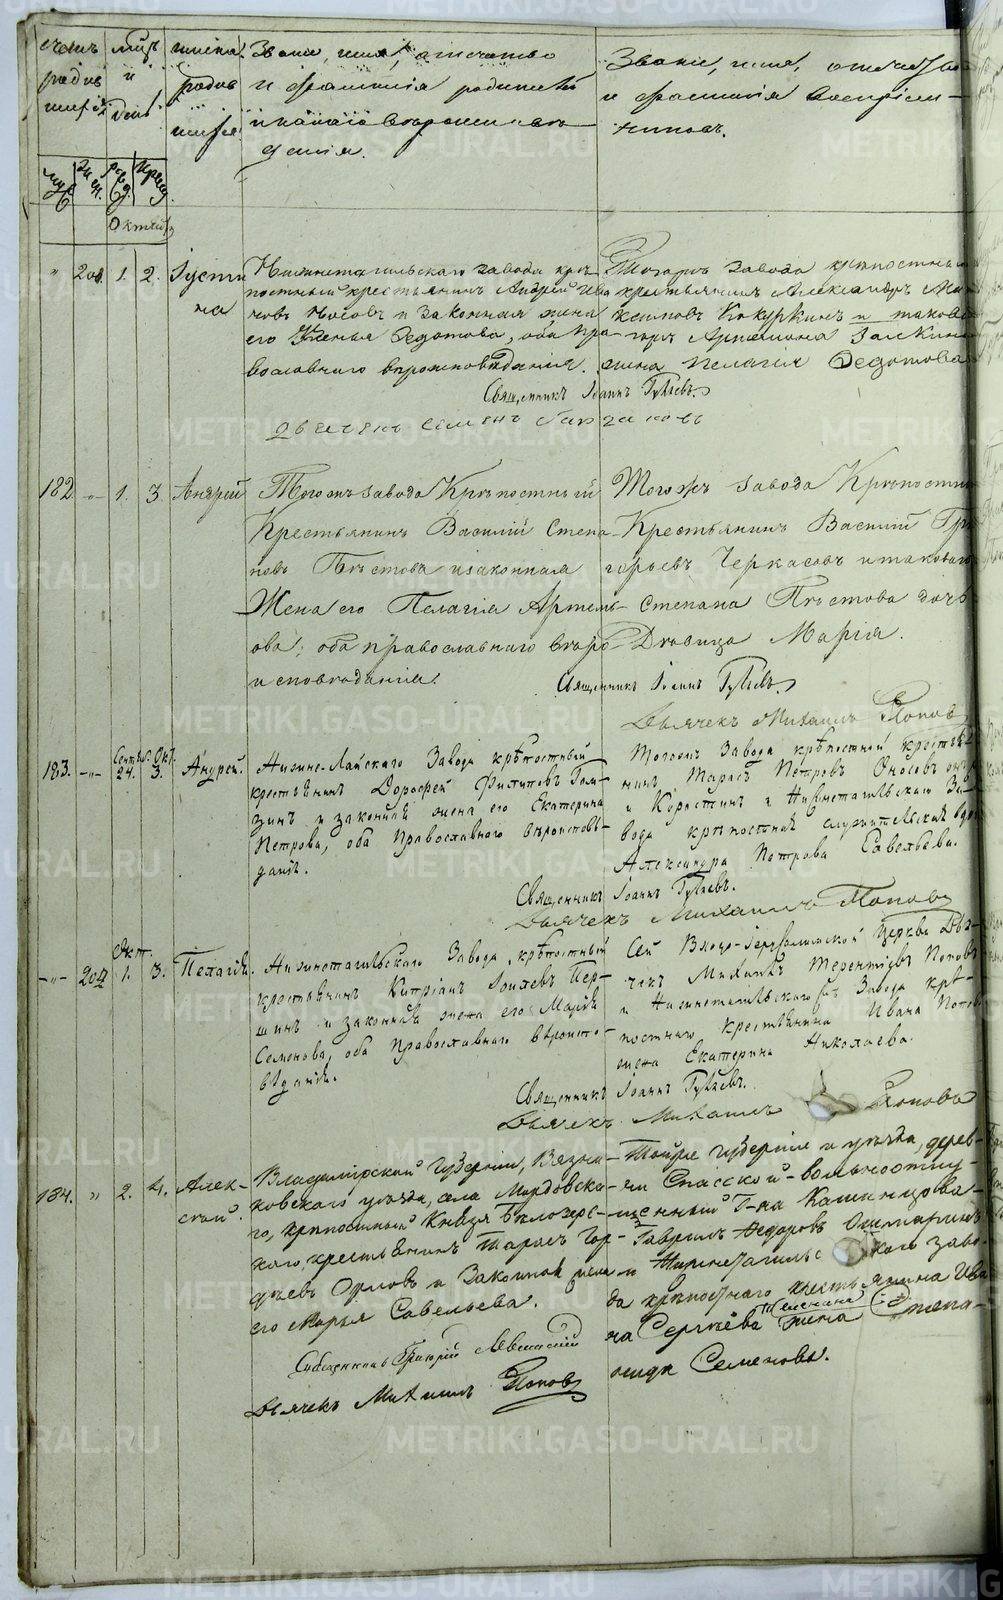 METRIKI.GASO-URAL.RU
счетъ родив шихся
мцъ и день
имена родив шихся
Званіе, имя, отчество
и фамилія родителей
и какого вѣроиспов
данія.
Званіе, имя, отчество
и фамилія воспріем-
никовъ.
муж жен рожд крещ
Октября
" 201 1. 2. Іусти
на
Нижнетагильскаго завода крѣ-
постный крестьянинъ Андрей Ива
новъ Носовъ и законная жена
его Ксенья Федотова, оба пра-
вославнаго вѣроисповѣданія.
Тогожъ завода крѣпостный
крестьянинъ Александръ Ма-
ксимовъ Кокуркинъ и таковаго
жена Пелагія Федотова
Священникъ Іоаннъ Гуляевъ.
182 -"- 1. 3. Андрей
Тогожъ завода Крѣпостный
Крестьянинъ Василій Степа-
новъ Пѣстовъ и законная
Жена его Пелагія Артемь-
ова; оба православнаго вѣро-
исповѣданія.
Тогожъ завода Крѣпостны
Крестьянинъ Василій Гри
горьевъ Черкасовъ и таковаго
Степана Пѣстова дочь
Дѣвица Марія.
Священникъ Іоаннъ Гуляевъ.
Дьячекъ Михаилъ Поповъ
183. -"- Сентяб. 24. Окт. 3. Андрей.
Нижне-Лайскаго Завода крѣпостный
крестьянинъ Дорофей Филиповъ Гал-
зинъ и законная жена его Екатерина
Петрова, оба Православнаго вѣроисповѣ-
данія.
Тогоже Завода крѣпостной крестья-
нинъ Тарасъ Петровъ Оносовъ
и Нижнетагильскаго За-
вода крѣпостная служительская вдова
Александра Петрова Савельева.
Священникъ Іоаннъ Гуляевъ.
Дьячекъ Михаилъ Поповъ
-"- 202 Окт. 1. 3. Пелагія.
Нижнетагильскаго Завода, крѣпостный
крестьянинъ Кипріанъ Іовлевъ Пер-
шинъ и законная жена его Марія
Семенова, оба Православнаго вѣроиспо-
вѣданія.
Сей Входо-Іерусалимской Церкви Дья-
чекъ Михаилъ Терентіевъ Поповъ
и Нижнетагильскаго Завода крѣ-
постнаго крестьянина Ивана Попова
жена Екатерина Николаева.
Священникъ Іоаннъ Гуляевъ.
Дьячекъ Михаилъ Поповъ
184. " 2. 4. Алек-
сѣй.
Владимірской Губерніи, Вязни-
ковскаго уѣзда, села Мордовска-
го, крѣпостный Князя Бѣлозерс-
каго, крестьянинъ Тарасъ Гор-
дѣевъ Орловъ и Законная жена
его Марья Савельева.
Тойже губерніи и уѣзда, дерев-
ни Спасской - вольноотпу-
щенный Г-на Кашинцова-
Гаврилъ Федоровъ
и Нижнетагильскаго заво-
да крѣпостнаго крестьянина Ива
на Сергѣева жена Степа-
нида Семенова.
Священникъ Григорій Левитскій
Дьячекъ Михаилъ Поповъ